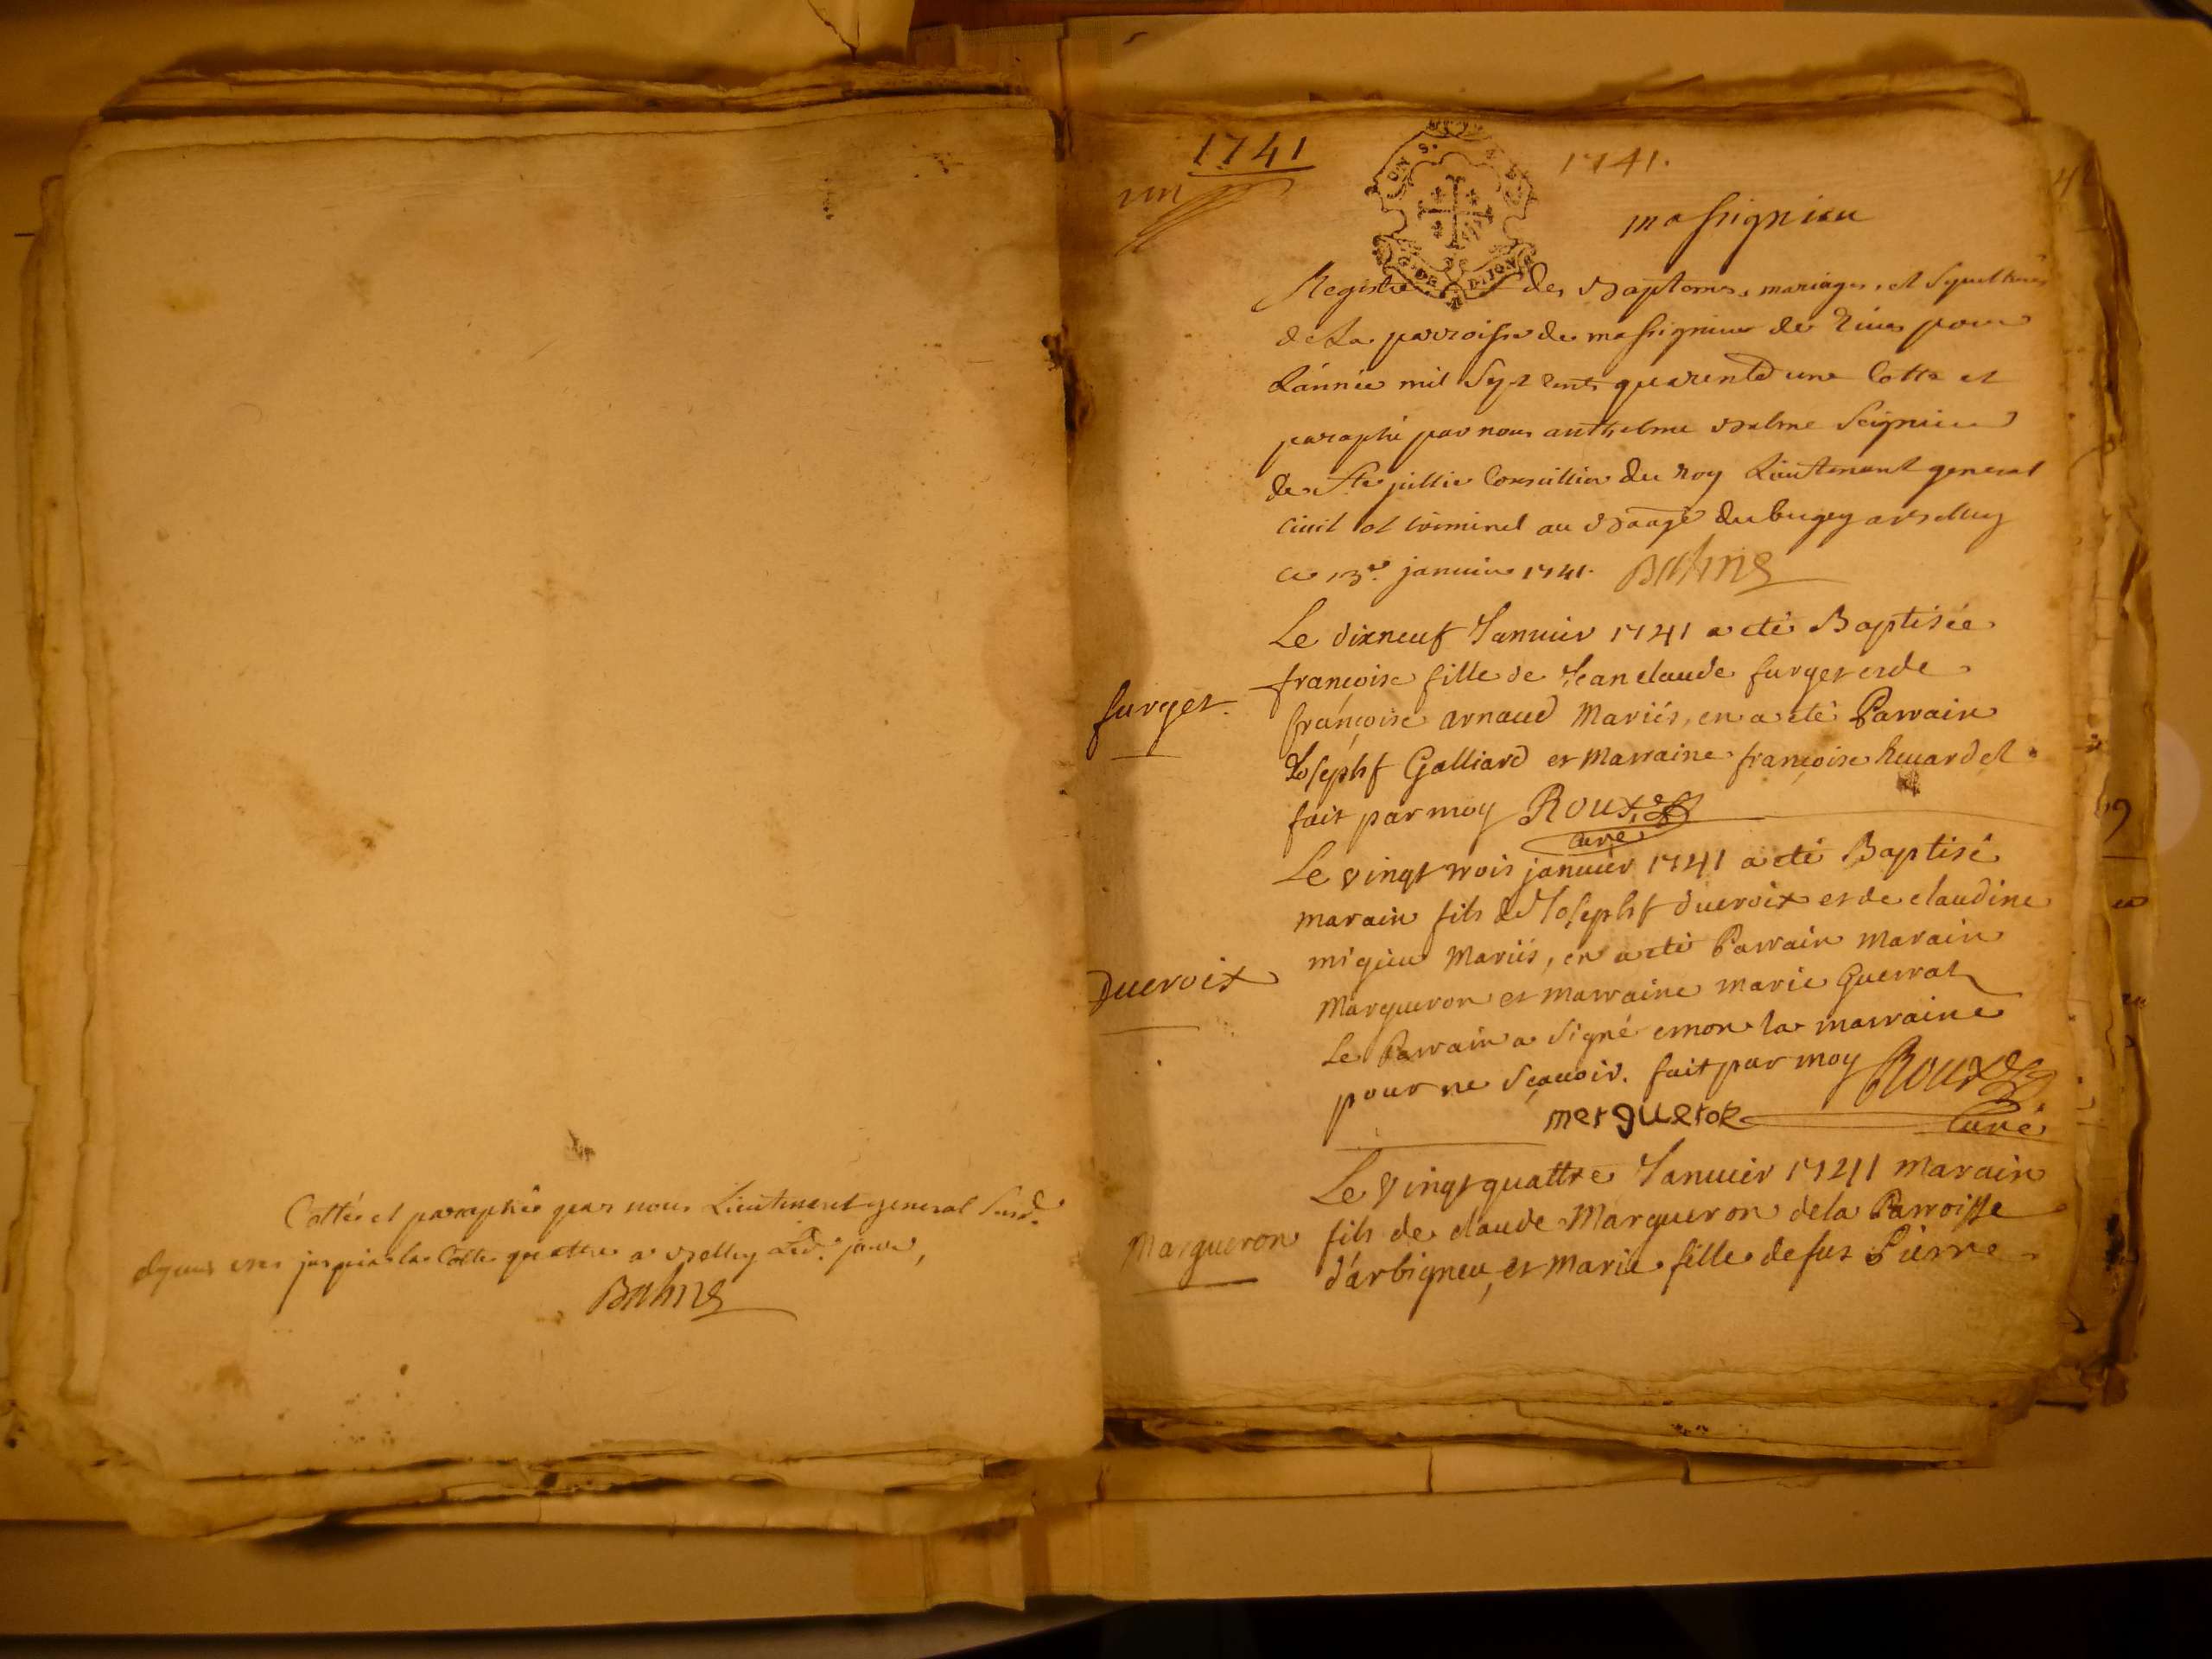 Cottés et paraphés par nous Lieutenant general susd.
depuis une jusqu'a la Cotte quattre a Belley led. jour,
Balme
1741
un
1741.
massignieu
Registre des Baptemes, mariages, et sepultures
de La parroisse de massignieu de Rives pour
L'année mil Sept cents quarente une Cotté et
paraphé par nous anthelme Balme Seigneur
de Ste jullie Conseillier du Roy Lieutenant general
civil et criminel au Baage du bugey a Belley
ce 13e. janvier 1741. Balme
Le dixneuf Janvier 1741 a eté Baptisée
francoise fille de Jean claude furget et de
furget.
françoise arnaud Mariés, en a eté Parrain
Josephf Galliard et Marraine françoise huardel
fait par moy Roux
Curé
Le vingt trois janvier 1741 a eté Baptisé
marain fils de Josephf ducroix et de claudine
migieu Mariés, en a eté Parrain Marain
Ducroix
Margueron et Marraine marie Guerrat
Le Parrain a signé et non la marraine
pour ne sçavoir. fait par moy Roux
merguerok
Curé
Le vingt quattre Janvier 1741 Marain
fils de claude Margueron de la Parroisse
Margueron
d'arbigneu, et Marie fille de fut Pierre